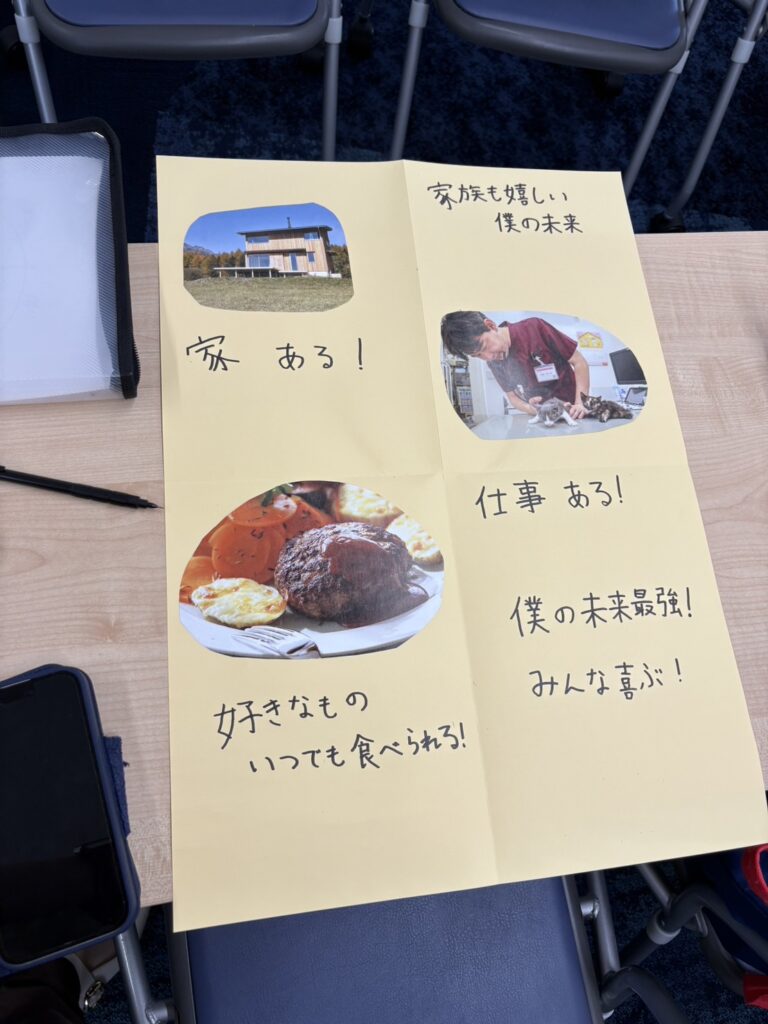 家族も嬉しい
僕の未来
家 ある!
仕事 ある!
好きなもの
いつでも食べられる!
僕の未来最強!
みんな喜ぶ!